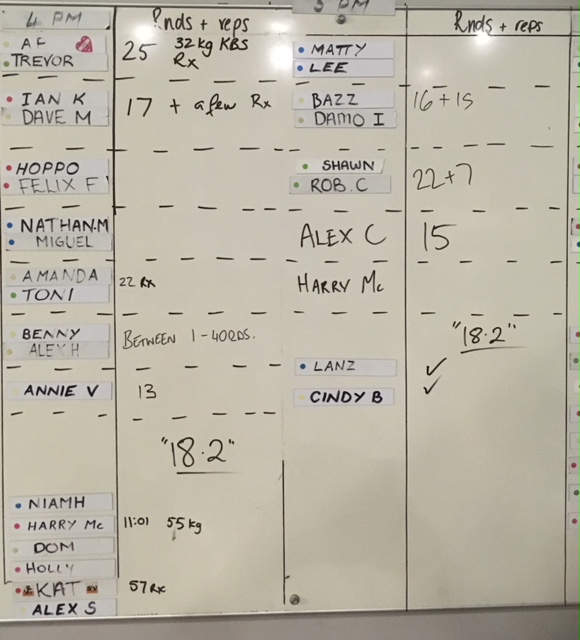 4 PM
Rnds + reps
AF
TREVOR
25 32kg KBS
Rx
IAN K
DAVE M
17 + a few Rx
HOPPO
FELIX F
NATHAN.M
MIGUEL
AMANDA
TONI
22 Rx
BENNY
ALEX H
BETWEEN 1-40RDS.
ANNIE V
13
"18.2"
NIAMH
HARRY Mc
11:01 55kg
DOM
HOLLY
KAT
57 Rx
ALEX S
5 PM
Rnds + reps
MATTY
LEE
BAZZ
DAMO I
16+15
SHAWN
ROB.C
22+7
ALEX C
15
HARRY Mc
"18.2"
LANZ ✓
CINDY B ✓